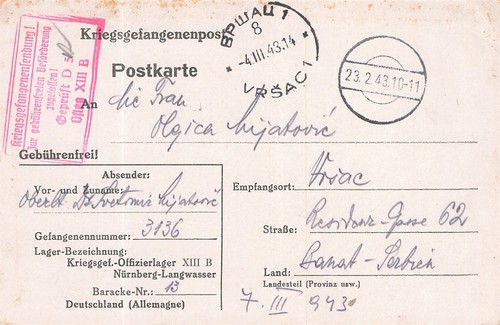 Kriegsgefangenensendung!
zur gebührenfreien Beförderung
zugelassen!
Geprüft D 5
Oflag XIII B
Kriegsgefangenenpost
ВРШАЦ 1
8
-4.III.43.14
VRŠAC 1
23.2.43.10-11
Postkarte
An die Frau
Olgica Mijatović
Gebührenfrei!
Absender:
Vor- und Zuname:
Oberlt. Dr. Svetomir Mijatović
Gefangenennummer: 3136
Lager-Bezeichnung:
Kriegsgef.-Offizierlager XIII B
Nürnberg-Langwasser
Baracke-Nr.: 13
Deutschland (Allemagne)
Empfangsort: Vršac
Straße: Residenz-Gasse 62
Land: Banat-Serbien
Landesteil (Provinz usw.)
7. III 943